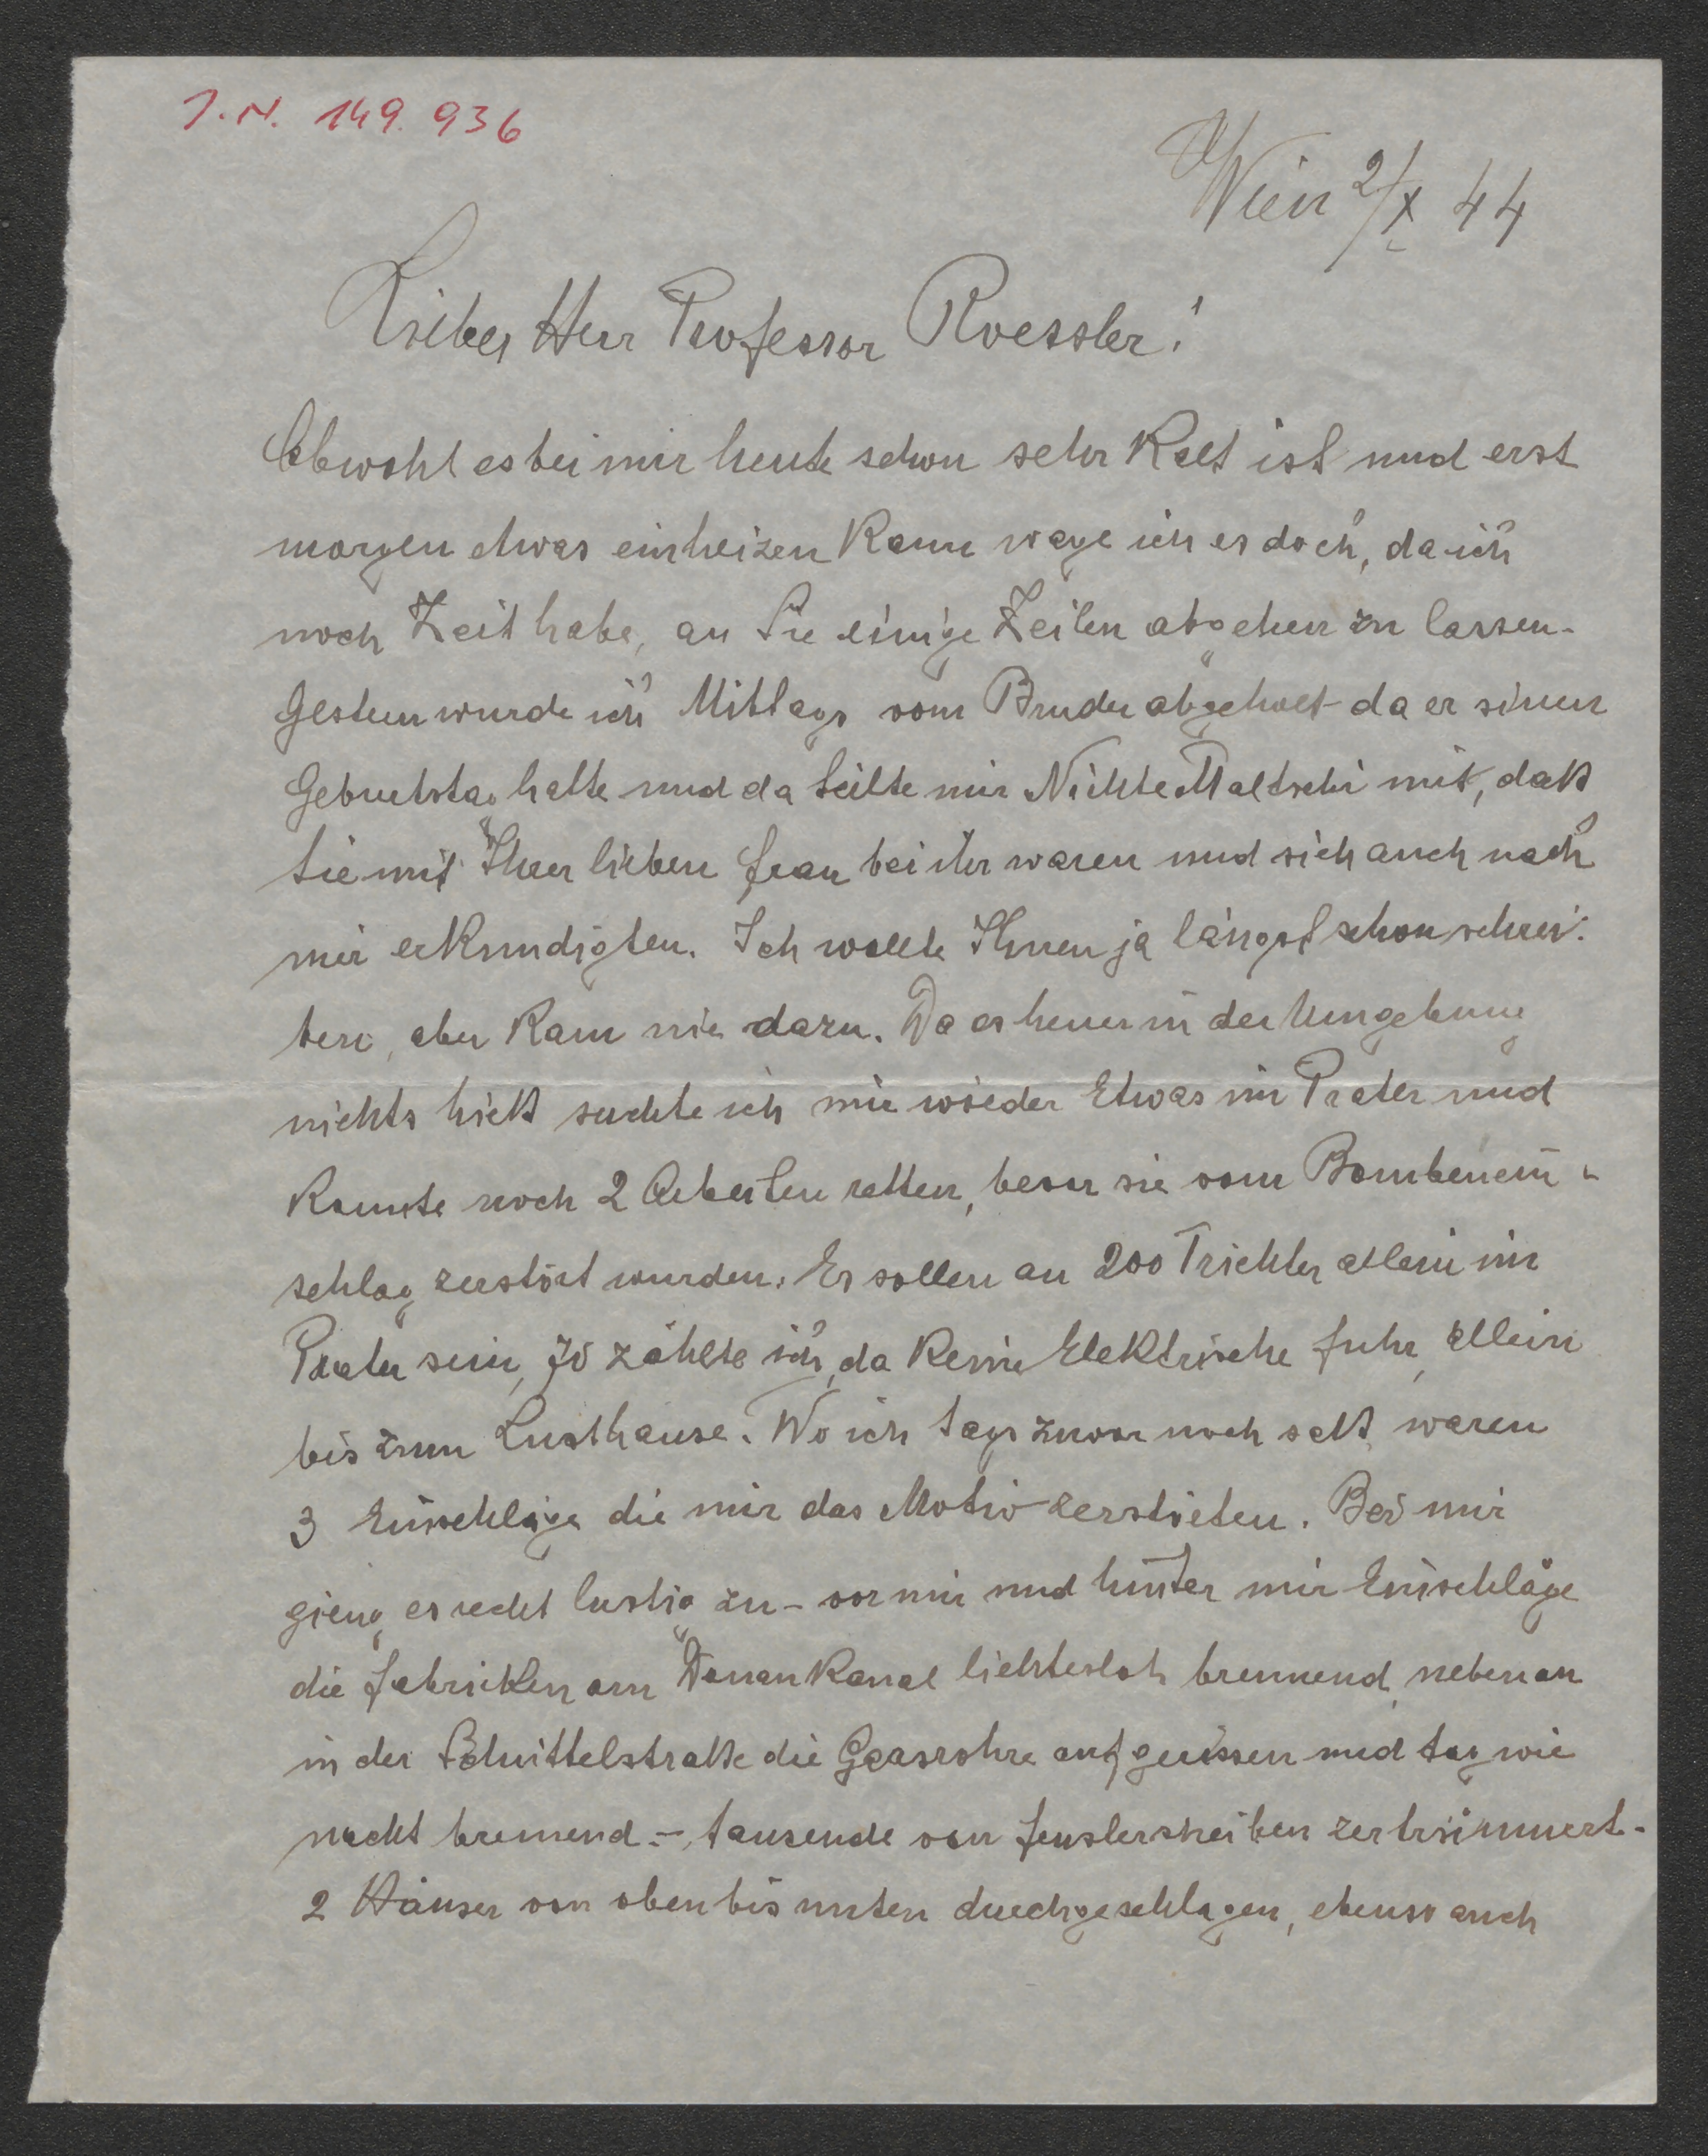 J.N. 149.936
Wien 2/X 44
Lieber Herr Professor Roessler!
Obwohl es bei mir heute schon sehr Kalt ist und erst
morgen etwas einheizen Kann wage ich es doch, da ich
noch Zeit habe, an Sie einige Zeilen abgehen zu lassen-
Gestern wurde ich Mittags vom Bruder abgeholt - da er seinen
Geburtstag hatte und da teilte mir Nichte Maltschi mit, daß
Sie mit Ihrer lieben Frau bei ihr waren und sich auch nach
mir erKundigten. Ich wollte Ihnen ja längst schon schrei:
ben, aber Kam nie dazu. Da es heuer in der Umgebung
nichts hieß suchte ich mir wieder Etwas im Prater und
Konnte noch 2 Arbeiten retten, bevor sie vom Bombenein-
schlag zerstört wurden. Es sollen an 200 Trichter allein im
Prater sein, 70 zählte ich, da Keine EleKtrische fuhr, allein
bis zum Lusthause. Wo ich tags zuvor noch saß waren
3 Einschläge die mir das Motiv zerstörten. Bei mir
gieng es recht lustig zu - vor mir und hinter mir Einschläge
die FabriKen am DonauKanal lichterloh brennend, nebenan
in der Schüttelstraße die Gaasrohre aufgerissen und tag wie
nacht brennend - tausende von Fensterscheiben zertrümmert-
2 Häuser von oben bis unten durchgeschlagen, ebenso auch